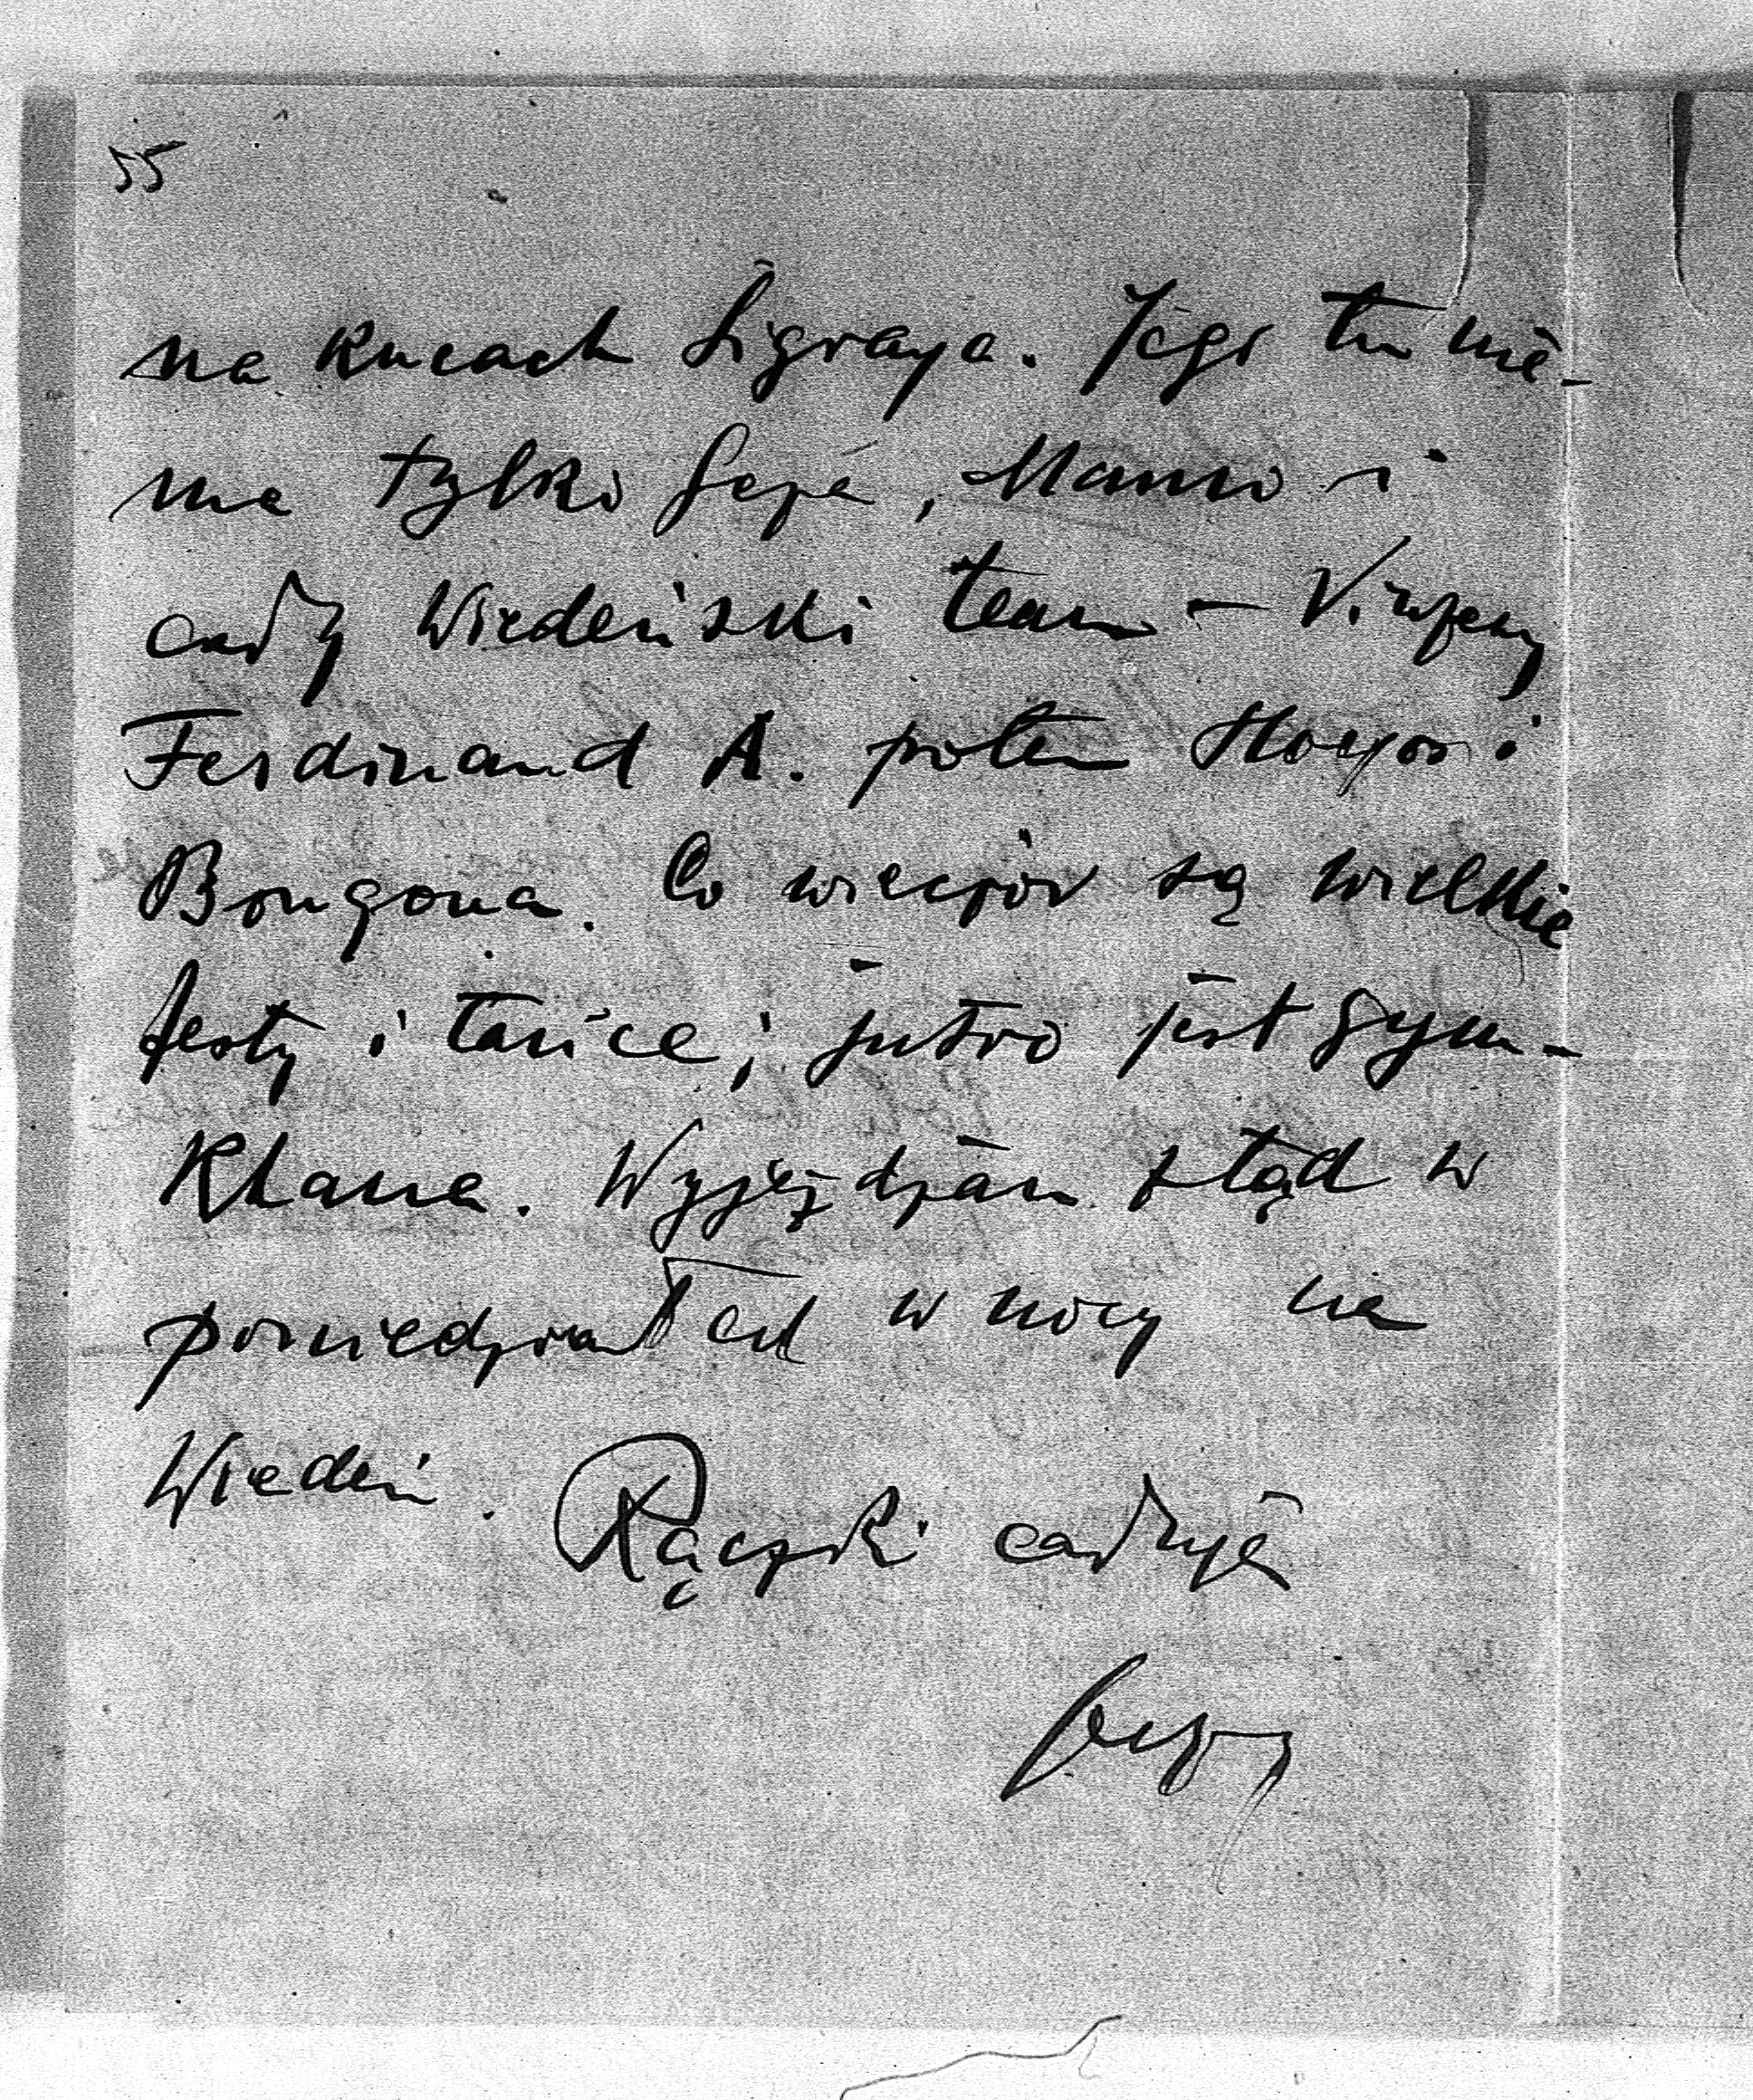 55
na kucach Sigraya. Jego tu nie-
ma tylko Gépé, Manno i
cały Wiedeński team —
Ferdinand A. potem Hoyos i
Bongona. Co wieczór są wielkie
festy i tańce; jutro jest Gym-
Khana. Wyjeżdżam stąd w
poniedziałek w nocy na
Wiedeń. Rączki całuję